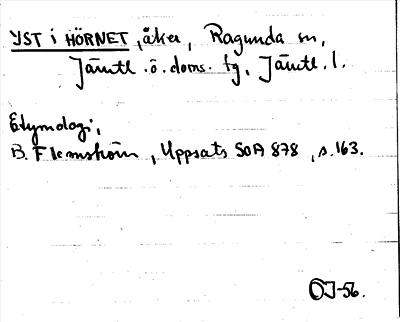 YST i HÖRNET, åker, Ragunda sn,
Jämtl. ö. doms. tg, Jämtl. l.
Etymologi,
B. Flemström, Uppsats SOA 878, s. 163.
ÖJ-56.